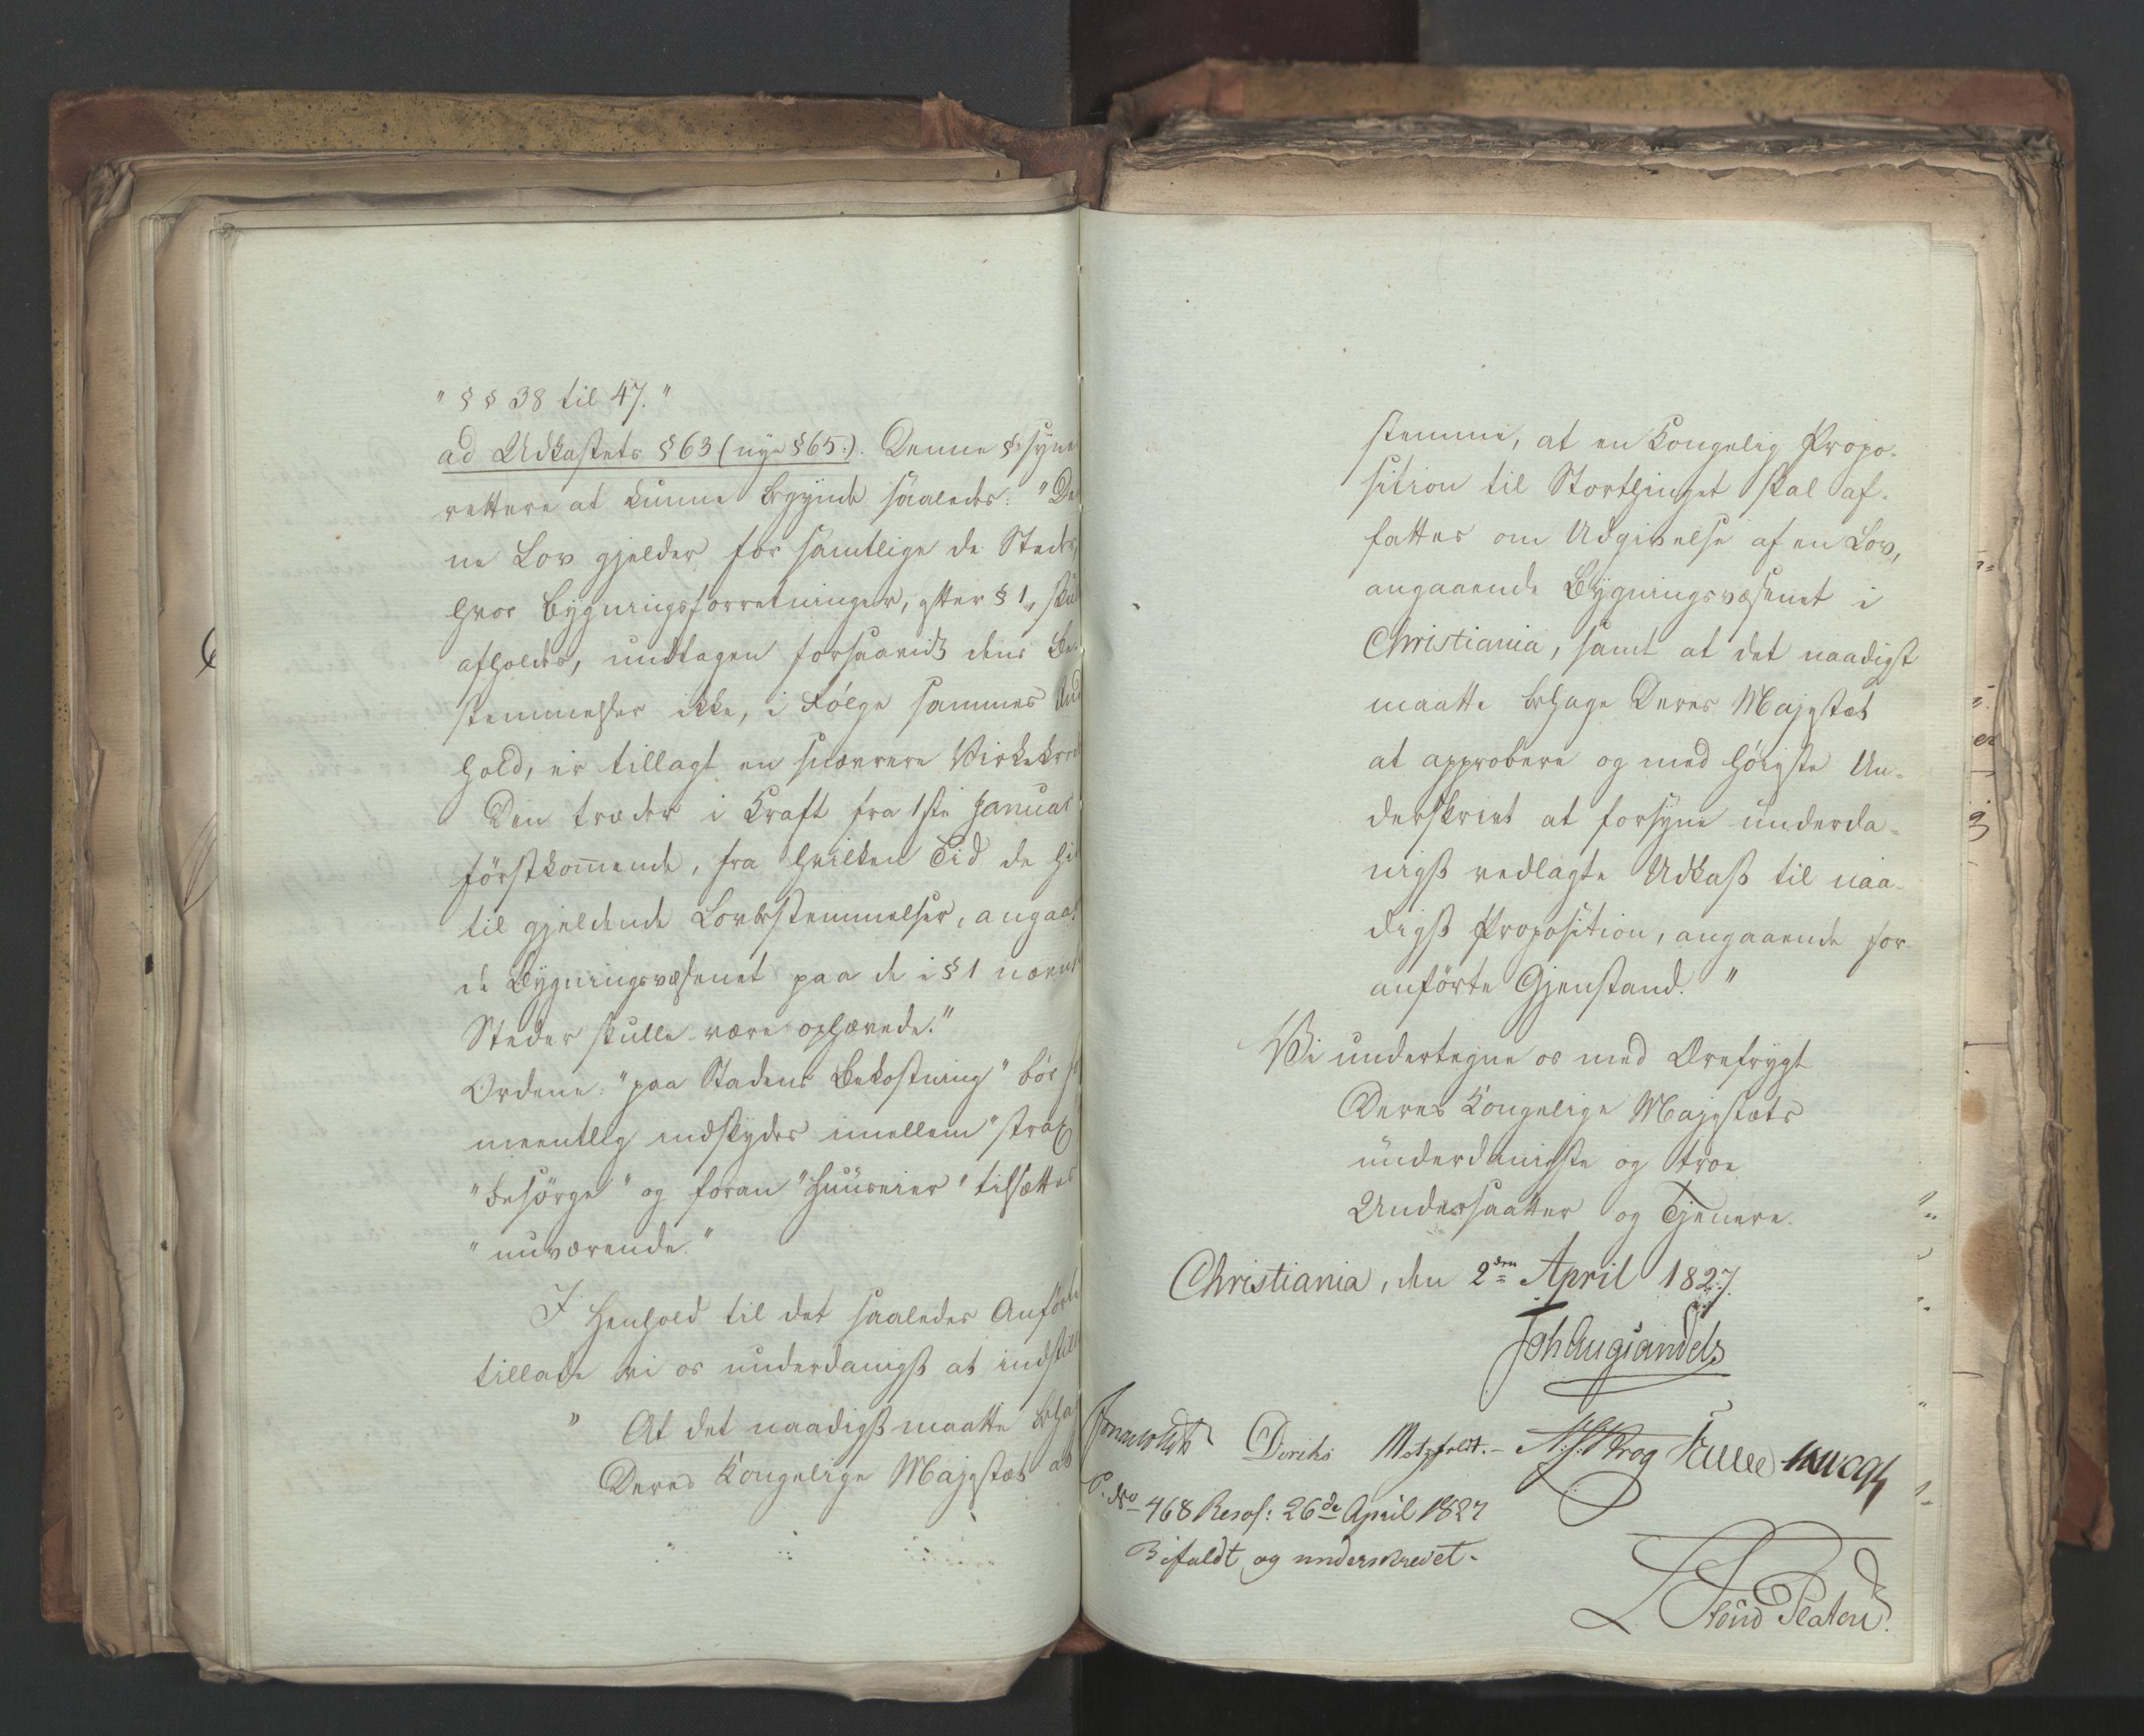 " §§ 38 til 47. "
ad Udkastets § 63 (nye § 65.). Denne § syne
rettere at kunne begynde saaledes: "Den
ne Lov gjelder for samtlige de Steder,
hvor Bygningsforretninger, efter § 1, skul
afholdes, undtagen forsaavidt dens Be-
stemmelser ikke, i Følge sammes Ind
hold, er tillagt en snævrere Virkekreds
Den træder i Kraft fra 1ste Januar
førstkommende, fra hvilken Tid de hid
til gjeldende Lovbestemmelser, angaaen
de Bygningsvæsenet paa de i § 1 nævnte
Steder skulle være ophævede."
Ordene: "paa Stadens Bekostning" bør
meentlig indskydes imellem "strax
"besørge" og foran "Huuseier" tilsættes
"nuværende."
I Henhold til det saaledes Anførte
tillade vi os underdanigst at indstille
" At det naadigst maatte behage
Deres Kongelige Majestæt at
stemme, at en Kongelig Propo-
sition til Storthinget skal af-
fattes om Udgivelse af en Lov,
angaaende Bygningsvæsenet i
Christiania, samt at det naadigst
maatte behage Deres Majestæt
at approbere og med høieste Un-
derskrivt at forsyne underda-
nigst vedlagte Udkast til naa-
digst Proposition, angaaende for-
anførte Gjenstand. "
Vi undertegne os med Ærefrygt
Deres Kongelige Majestæts
underdanigste og troe
Undersaatter og Tjenere.
Christiania, den 2den April 1827.
Joh Aug Sandels
Collett Diriks Motzfeldt. - Krog Fasting
P. No 468 Resol: 26de April 1827
Bifaldt og underskrevet.
L. Stoud Platou.